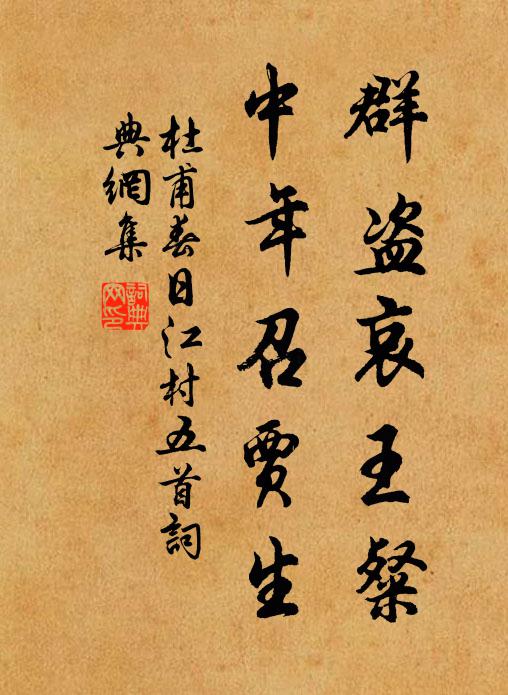 群盗哀王粲
中年召賈生
杜甫春日江村五首詞
典網集
詞典
网印